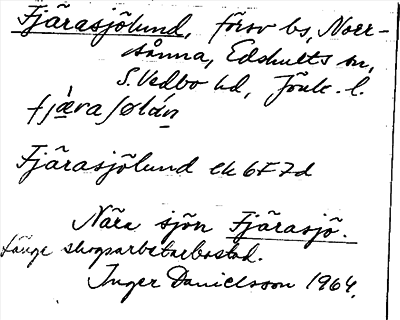 Fjärasjölund, försv bs, Norr-
sånna, Edshults sn,
S. Vedbo hd, Jönk. l.
fjæra ʃølán
Fjärasjölund ek 6F7d
Nära sjön Fjärasjö.
länge skogsarbetarbostad.
Inger Danielsson 1964.